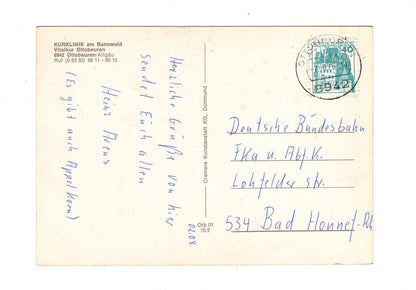 KURKLINIK am Bannwald
Vitalkur Ottobeuren
8942 Ottobeuren/Allgäu
Ruf (0 83 32) 66 11 - 66 15
Herzliche Grüße von hier
sendet Euch allen
Heinz
(Es gibt auch Appelkorn)
02.08.
Cramers Kunstanstalt KG, Dortmund
Otb 01
76/2
OTTOBEUREN
8942
Deutsche Bundesbahn
FKa u. Abf.K.
Lohfelder Str.
534 Bad Honnef-Rh